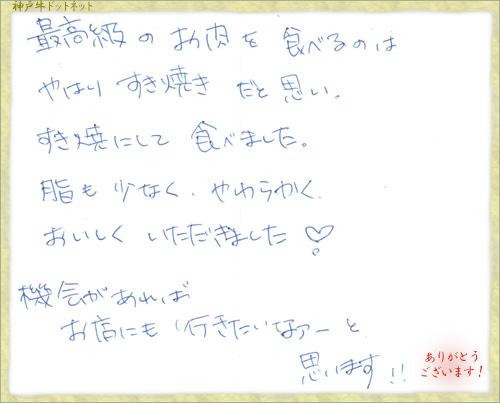 神戸牛ドットネット
最高級のお肉を食べるのは
やはりすき焼きだと思い、
すき焼にして食べました。
脂も少なく、やわらかく、
おいしくいただきました♡
機会があれば
お店にも行きたいなァーと
思います!!
ありがとう
ございます!